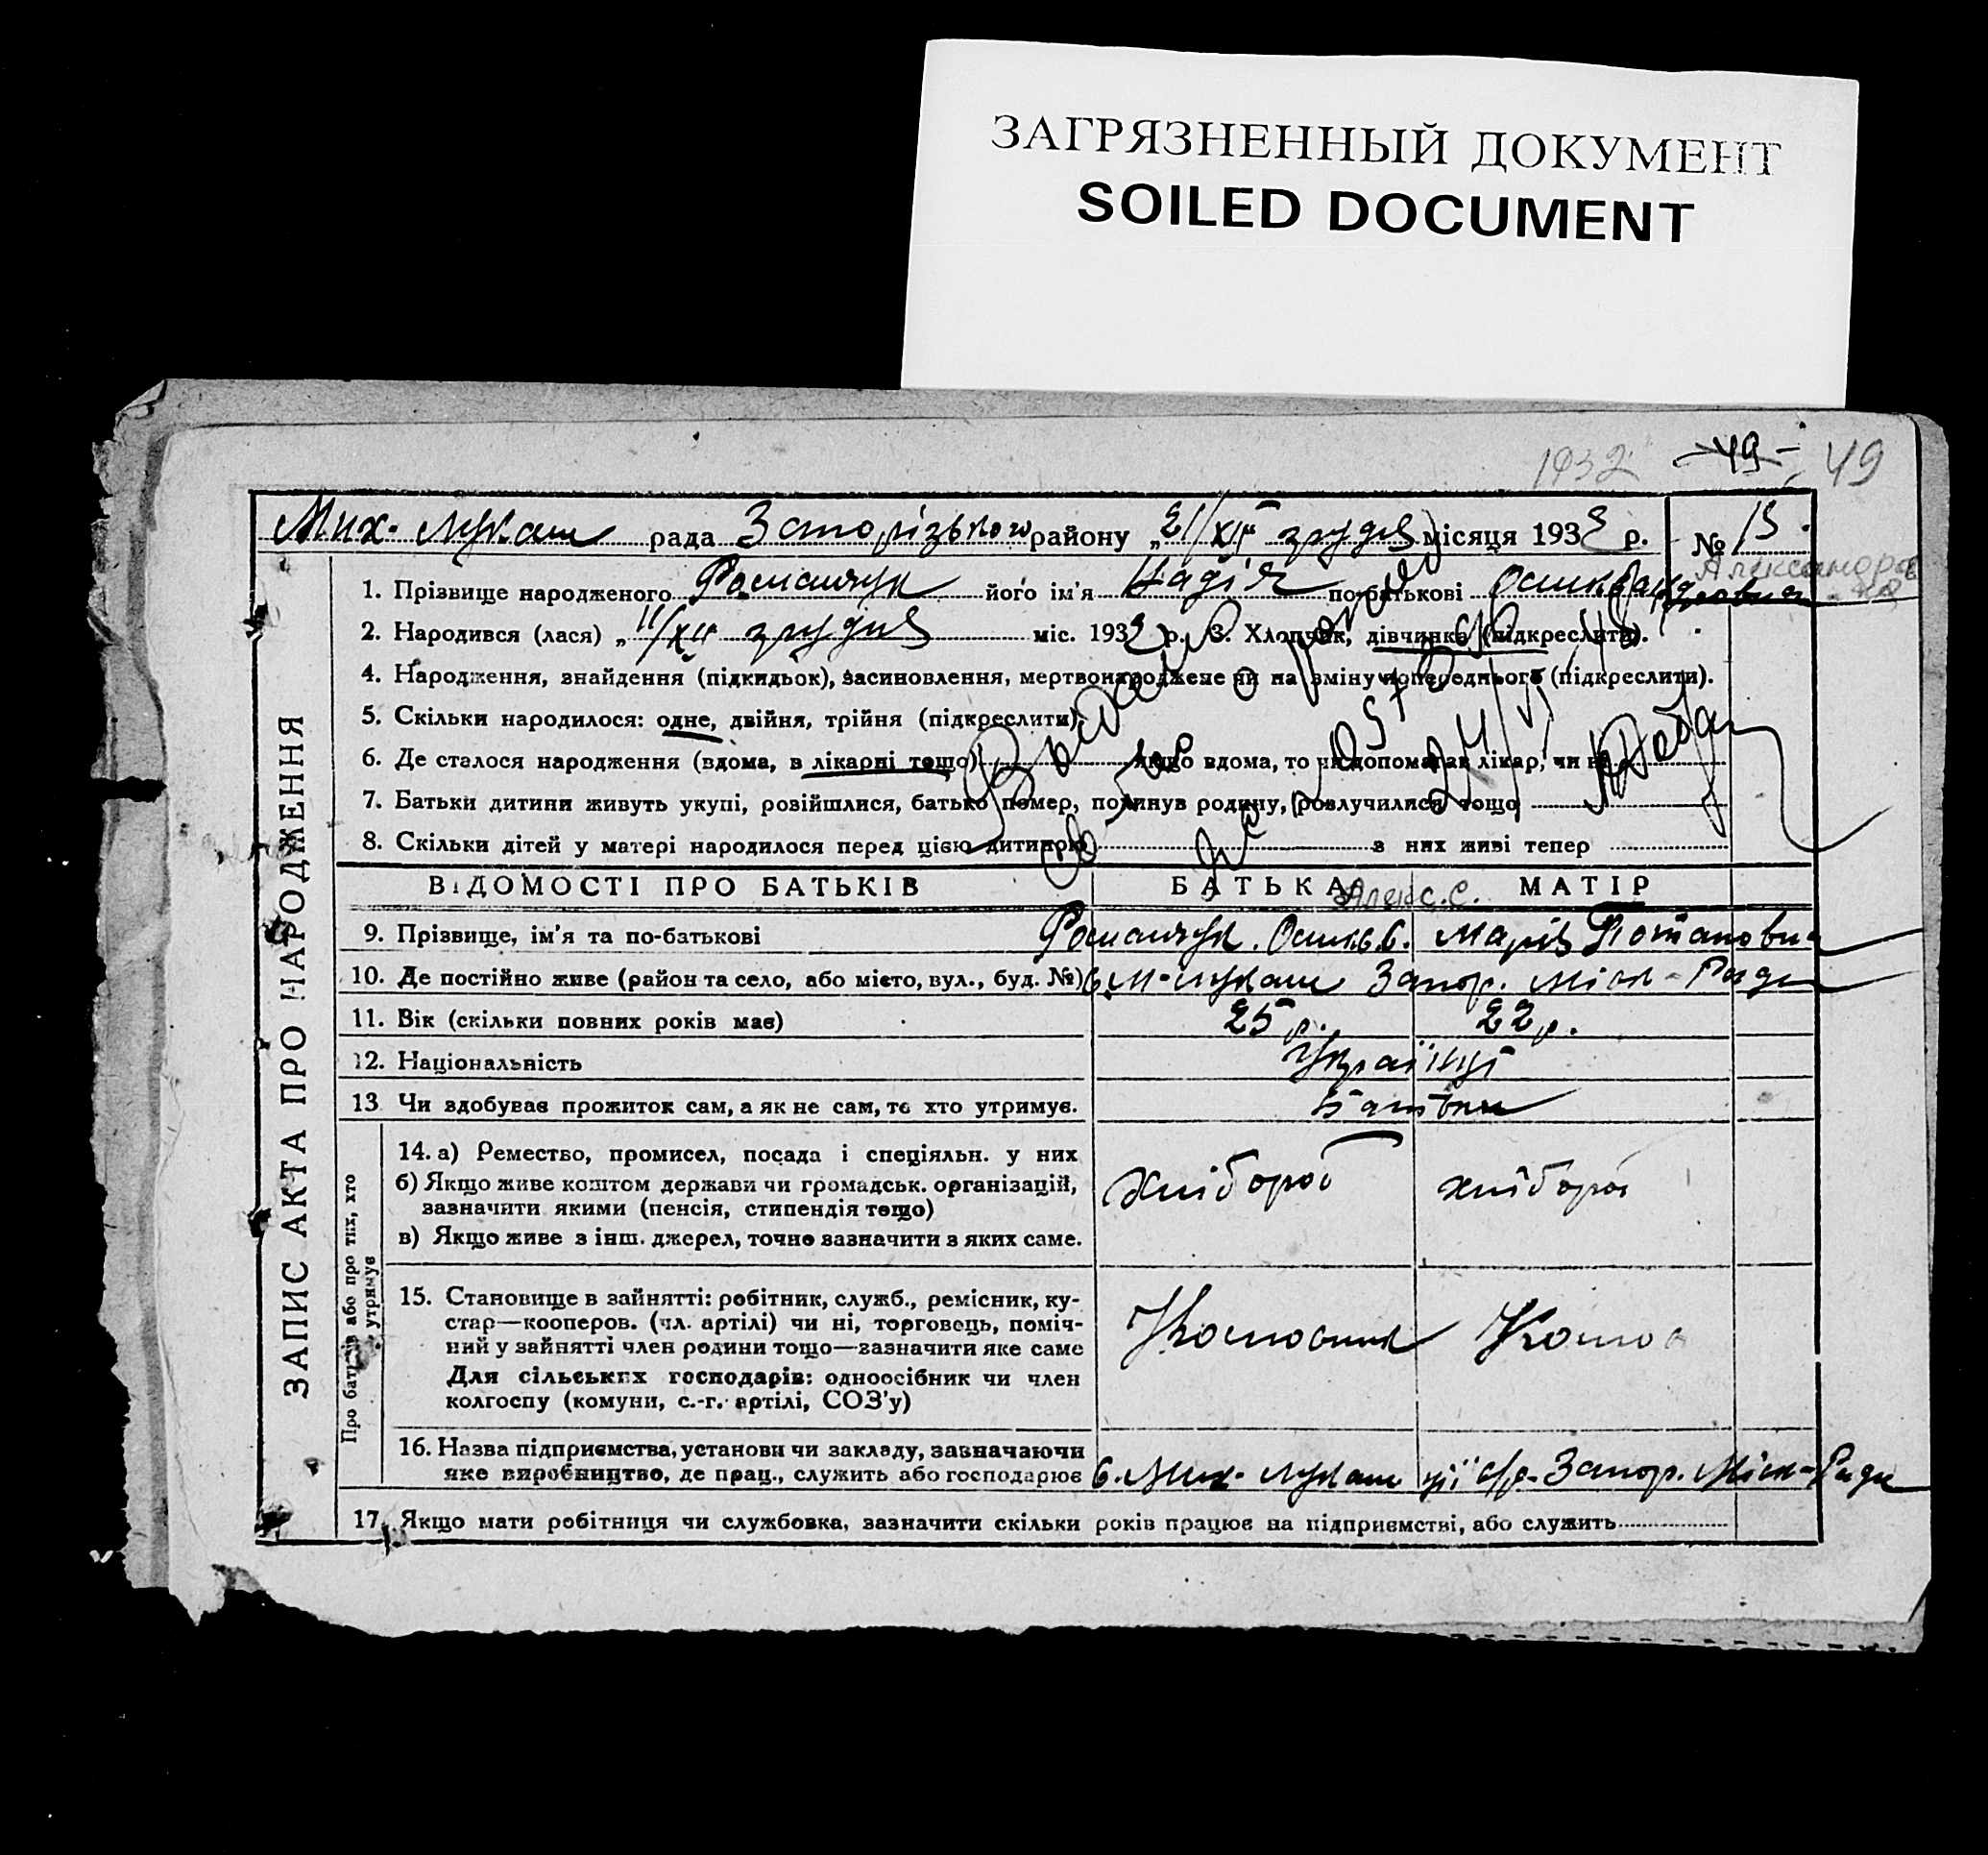 ЗАГРЯЗНЕННЫЙ ДОКУМЕНТ
SOILED DOCUMENT
1932 -49- 49
Мих. Лукаш рада Запорізького району „21/XII грудня місяця 1932 р. № 13.
Александров
1. Прізвище народженого Романчук його ім'я Надія по-батькові
2. Народився (лася) „11/XII грудня міс. 1932 р. 3. Хлопчик, дівчинка (підкреслити).
4. Народження, знайдення (підкидьок), засиновлення, мертвонароджене чи на зміну попереднього (підкреслити).
5. Скільки народилося: одне, двійня, трійня (підкреслити)
6. Де сталося народження (вдома, в лікарні тощо) якщо вдома, то чи допомагав лікар, чи
7. Батьки дитини живуть укупі, розійшлися, батько помер, покинув родину, розлучилися тощо
8. Скільки дітей у матері народилося перед цією дитиною з них живі тепер
ЗАПИС АКТА ПРО НАРОДЖЕННЯ
ВІДОМОСТІ ПРО БАТЬКІВ БАТЬКА МАТІР
Алекс. С.
9. Прізвище, ім'я та по-батькові Романчук Марія Потаповна
10. Де постійно живе (район та село, або місто, вул., буд. №) с. М-Лукаш Запор. Міск-Ради
11. Вік (скільки повних років має) 25 р. 22 р.
12. Національність Українці
13 Чи здобуває прожиток сам, а як не сам, то хто утримує. Батьки
Про батьків або про тих, хто утримує
14. а) Ремество, промисел, посада і спеціяльн. у них хлібороб хлібороб
б) Якщо живе коштом держави чи громадськ. організацій,
зазначити якими (пенсія, стипендія тощо)
в) Якщо живе з інш. джерел, точно зазначити з яких саме.
15. Становище в зайнятті: робітник, служб., ремісник, ку-
стар—кооперов. (чл. артілі) чи ні, торговець, поміч-
ний у зайнятті член родини тощо—зазначити яке саме
Для сільських господарів: одноосібник чи член
колгоспу (комуни, с.-г. артілі, СОЗ'у)
16. Назва підприємства, установи чи закладу, зазначаючи
яке виробництво, де прац., служить або господарює с. Мих. Лукаш с/р. Запор. Міск-Ради
17. Якщо мати робітниця чи службовка, зазначити скільки років працює на підприємстві, або служить